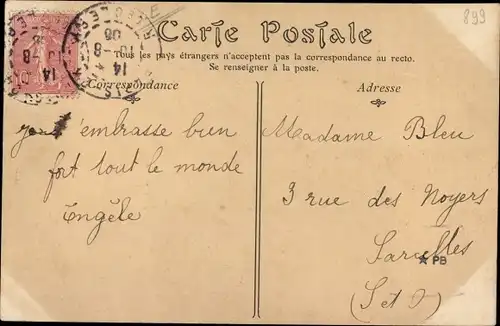 899
Carte Postale
Tous les pays étrangers n'acceptent pas la correspondance au recto.
Se renseigner à la poste.
Correspondance
Adresse
j'embrasse bien
fort tout le monde
Engèle
Madame Bleu
3 rue des Noyers
Sarcelles
PB
(S et O)